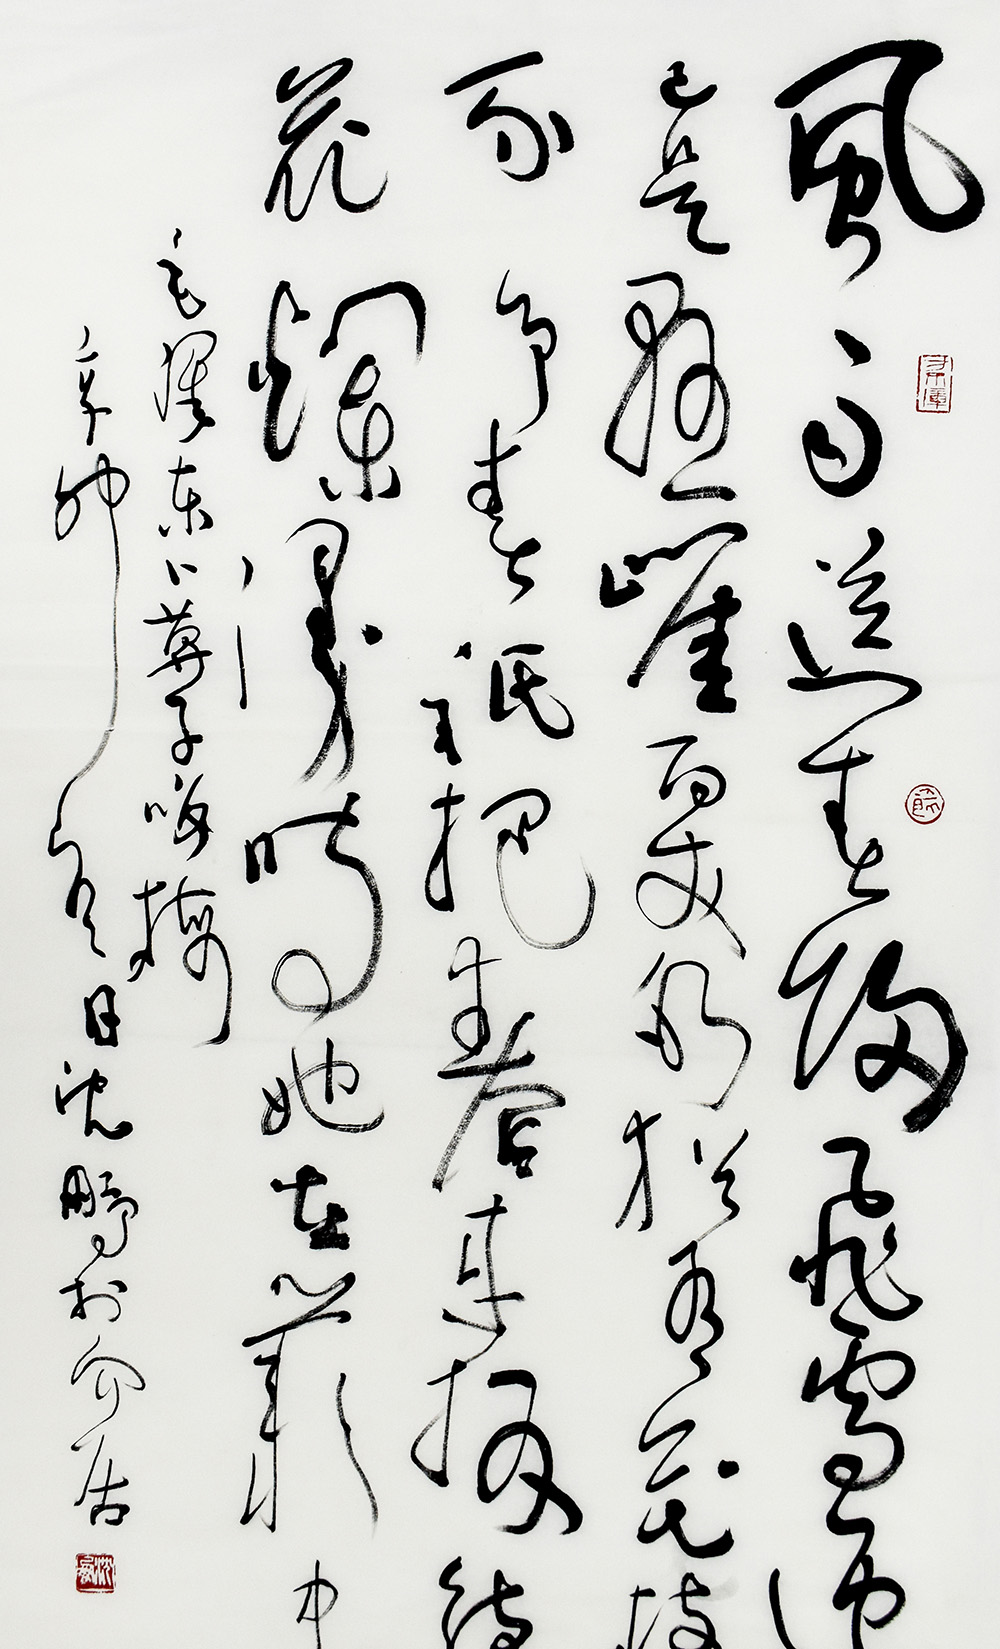 風雨送春歸飛雪迎
已是懸崖百丈冰猶有花枝
不爭春祇把春來報待
花爛漫時她在叢中
毛澤東卜算子詠梅
辛卯夏日沈鵬於介居